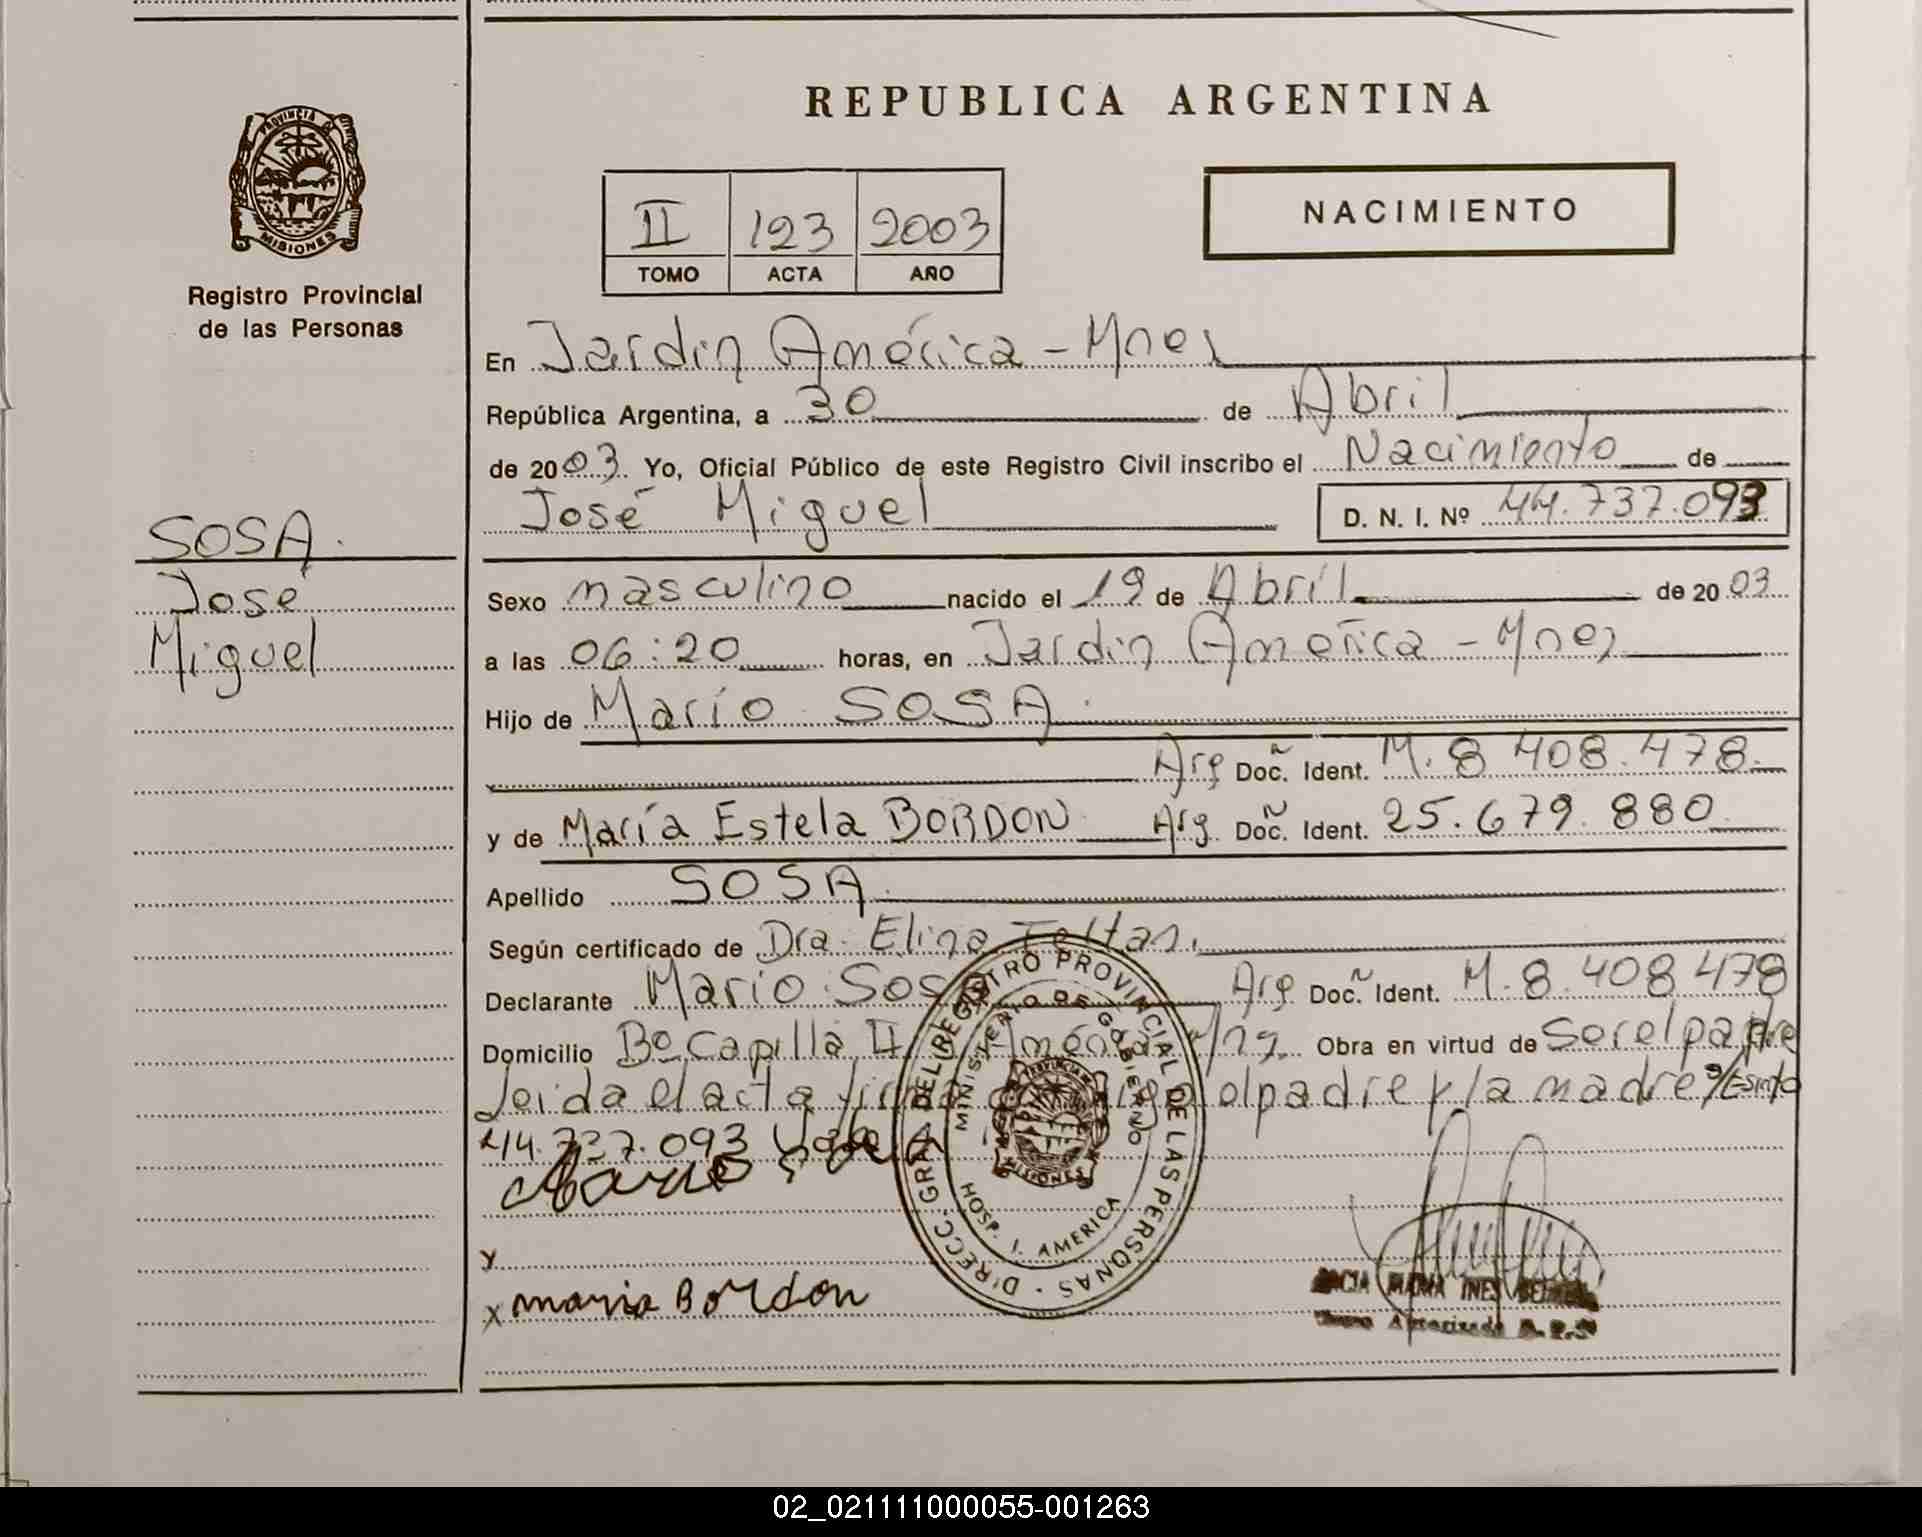 PROVINCIA DE
MISIONES
Registro Provincial
de las Personas
SOSA.
José
Miguel
REPUBLICA ARGENTINA
II 123 2003
TOMO ACTA AÑO
NACIMIENTO
En Jardin América - Mnes
República Argentina, a 30 de Abril
de 2003. Yo, Oficial Público de este Registro Civil inscribo el Nacimiento de
José Miguel D. N. I. Nº 44.737.093
Sexo masculino nacido el 19 de Abril de 2003
a las 06:20 horas, en Jardin América - Mnes
Hijo de Mario SOSA
Arg Doc. Ident. M. 8 408.478.
y de María Estela BORDON Arg. Doc. Ident. 25.679.880
Apellido SOSA
Según certificado de Dra. Elina
Declarante Mario Sosa Arg. Doc. Ident. M. 8.408 478
Domicilio Bº Capilla II América Obra en virtud de Ser el padre
Leida el acta el padre y la madre
44.737.093 Vale
DIRECC. GRAL. DEL REGISTRO PROVINCIAL DE LAS PERSONAS
MINISTERIO DE GOBIERNO
PROVINCIA DE
MISIONES
HOSP. J. AMERICA
y
x maria Bordon
MARIA INES
02_021111000055-001263